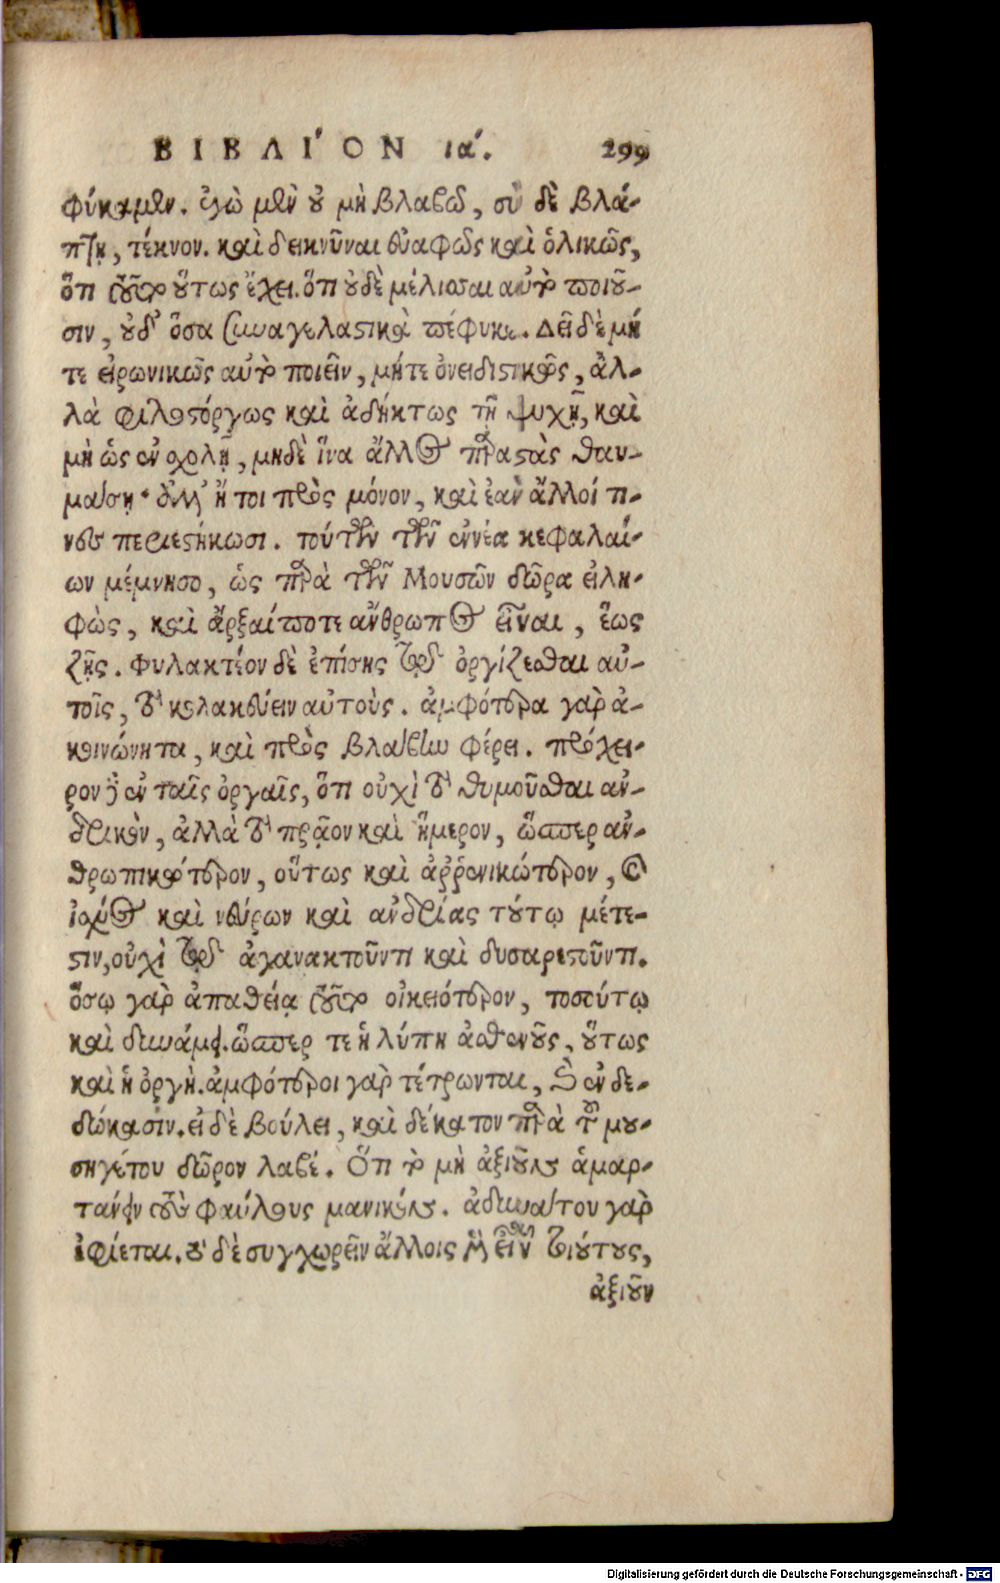 ΒΙΒΛΙ´ΟΝ ια΄. 299
φύκαμεν. ἐγὼ μὲν οὐ μὴ βλαβῶ, σὺ δὲ βλά-
πτῃ, τέκνον. καὶ δεικνῦναι εὐαφῶς καὶ ὁλικῶς,
ὅτι τοῦτο οὕτως ἔχει. ὅτι οὐδὲ μέλισσαι αὐτὸ ποιοῦ-
σιν, οὐδ' ὅσα συναγελαστικὰ πέφυκε. Δεῖ δὲ μή
τε εἰρωνικῶς αὐτὸ ποιεῖν, μήτε ὀνειδιστικῶς, ἀλ-
λὰ φιλοστόργως καὶ ἀδήκτως τῇ ψυχῇ, καὶ
μὴ ὡς ἐν σχολῇ, μηδὲ ἵνα ἄλλος παραστὰς θαυ-
μάσῃ· ἀλλ' ἤ τοι πρὸς μόνον, καὶ ἐὰν ἄλλοί τι-
νες περιεστήκωσι. τούτων τῶν ἐννέα κεφαλαί-
ων μέμνησο, ὡς παρὰ τῶν Μουσῶν δῶρα εἰλη-
φὼς, καὶ ἄρξαί ποτε ἄνθρωπος εἶναι, ἕως
ζῇς. Φυλακτέον δὲ ἐπίσης τῷ ὀργίζεσθαι αὐ-
τοῖς, τὸ κολακεύειν αὐτοὺς. ἀμφότερα γὰρ ἀ-
κοινώνητα, καὶ πρὸς βλάβην φέρει. πρόχει-
ρον δὲ ἐν ταῖς ὀργαῖς, ὅτι οὐχὶ τὸ θυμοῦσθαι ἀν-
δρικὸν, ἀλλὰ τὸ πρᾷον καὶ ἥμερον, ὥσπερ ἀν-
θρωπικώτερον, οὕτως καὶ ἀῤῥενικώτερον, καὶ
ἰσχύος καὶ νεύρων καὶ ἀνδρίας τούτῳ μέτε-
στιν, οὐχὶ τῷ ἀγανακτοῦντι καὶ δυσαρεστοῦντι.
ὅσῳ γὰρ ἀπαθείᾳ τοῦτο οἰκειότερον, τοσούτῳ
καὶ δυνάμει. ὥσπερ τε ἡ λύπη ἀσθενοῦς, οὕτως
καὶ ἡ ὀργὴ. ἀμφότεροι γὰρ τέτρωνται, καὶ ἐνδε-
δώκασιν. εἰ δὲ βούλει, καὶ δέκατον παρὰ τοῦ μου-
σηγέτου δῶρον λαβέ. Ὅτι τὸ μὴ ἀξιοῦν ἁμαρ-
τάνειν τοὺς φαύλους μανικόν. ἀδυνάτου γὰρ
ἐφίεται. τὸ δὲ συγχωρεῖν ἄλλοις μὲν εἶναι τοιούτους,
ἀξιοῦν
Digitalisierung gefördert durch die Deutsche Forschungsgemeinschaft - DFG